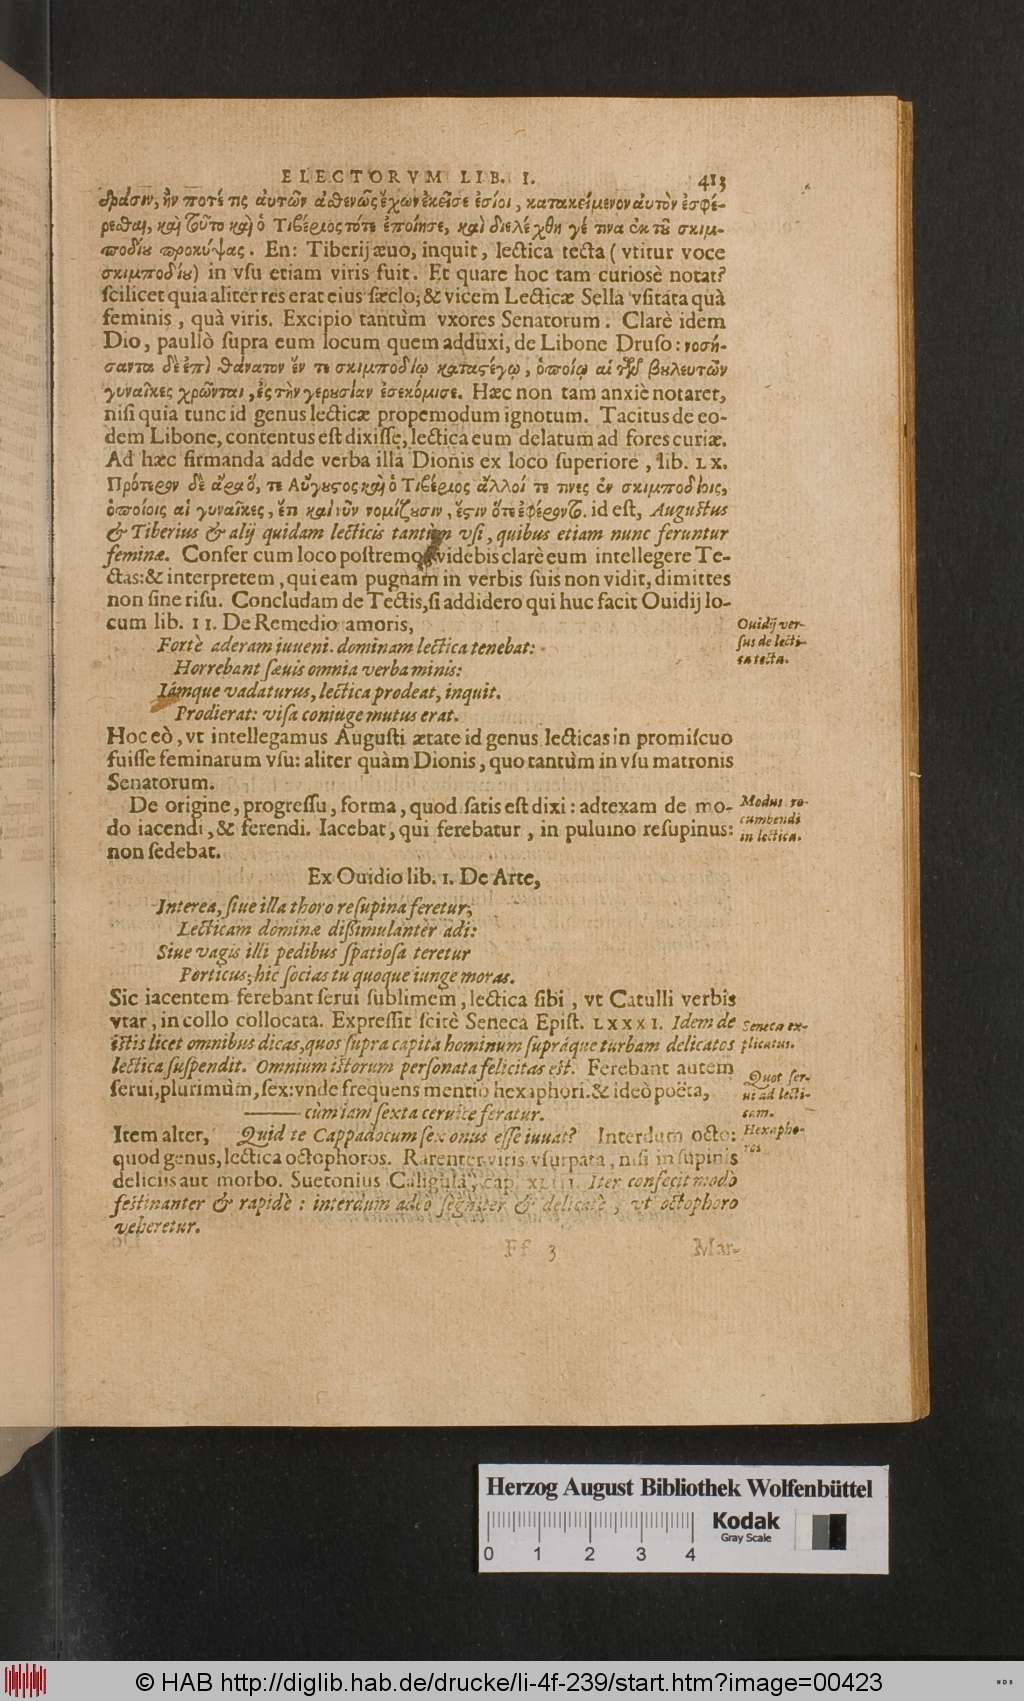 ELECTORVM LIB. I. 413
δράσιν, ἥν ποτέ τις ἀυτῶν ἀσθενῶς ἔχων ἐκεῖσε ἐσίοι, κατακείμενον ἀυτὸν ἐσφέ-
ρεσθαι, καὶ τοῦτο καὶ ὁ Τιβέριος τότε ἐποίησε, καὶ διελέχθη γέ τινα ἐκ τοῦ σκιμ-
ποδίου προκύψας. En: Tiberij æuo, inquit, lectica tecta (vtitur voce
σκιμποδίου) in vsu etiam viris fuit. Et quare hoc tam curiosè notat?
scilicet quia aliter res erat eius sæclo; & vicem Lecticæ Sella vsitata quà
feminis, quà viris. Excipio tantùm vxores Senatorum. Clarè idem
Dio, paullò supra eum locum quem adduxi, de Libone Druso: νοσή-
σαντα δὲ ἐπὶ θάνατον ἔν τε σκιμποδίῳ καταστέγῳ, ὁποίῳ αἱ τῶν βουλευτῶν
γυναῖκες χρῶνται, ἐς τὴν γερουσίαν ἐσεκόμισε. Hæc non tam anxiè notaret,
nisi quia tunc id genus lecticæ propemodum ignotum. Tacitus de eo-
dem Libone, contentus est dixisse, lectica eum delatum ad fores curiæ.
Ad hæc firmanda adde verba illa Dionis ex loco superiore, lib. LX.
Πρότερον δὲ ἄρα ὅ, τε Αὔγουστος καὶ ὁ Τιβέριος ἄλλοί τε τινες ἐν σκιμποδίοις,
ὁποίοις αἱ γυναῖκες, ἔτι καὶ νῦν νομίζουσιν, ἔστιν ὅτε ἐφέροντο. id est, Augustus
& Tiberius & alij quidam lecticis tantùm vsi, quibus etiam nunc feruntur
feminæ. Confer cum loco postremo, videbis clarè eum intellegere Te-
ctas: & interpretem, qui eam pugnam in verbis suis non vidit, dimittes
non sine risu. Concludam de Tectis, si addidero qui huc facit Ouidij lo-
cum lib. II. De Remedio amoris,
Ouidij ver-
sus de lecti-
ca tecta.
Fortè aderam iuueni. dominam lectica tenebat:
Horrebant sæuis omnia verba minis:
Iámque vadaturus, lectica prodeat, inquit.
Prodierat: visa coniuge mutus erat.
Hoc eò, vt intellegamus Augusti ætate id genus lecticas in promiscuo
fuisse feminarum vsu: aliter quàm Dionis, quo tantùm in vsu matronis
Senatorum.
De origine, progressu, forma, quod satis est dixi: adtexam de mo-
do iacendi, & ferendi. Iacebat, qui ferebatur, in puluino resupinus:
non sedebat.
Modus re-
cumbendi
in lectica.
Ex Ouidio lib. I. De Arte,
Interea, siue illa thoro resupina feretur,
Lecticam dominæ dissimulanter adi:
Siue vagis illi pedibus spatiosa teretur
Porticus; hic socias tu quoque iunge moras.
Sic iacentem ferebant serui sublimem, lectica sibi, vt Catulli verbis
vtar, in collo collocata. Expressit scitè Seneca Epist. LXXXI. Idem de
istis licet omnibus dicas, quos supra capita hominum supráque turbam delicatos
lectica suspendit. Omnium istorum personata felicitas est. Ferebant autem
serui, plurimùm, sex: vnde frequens mentio hexaphori. & ideò poëta,
Seneca ex-
plicatus.
Quot ser-
ui ad lecti-
cam.
Hexapho-
ros
—— cùm iam sexta ceruice feratur.
Item alter, Quid te Cappadocum sex onus esse iuuat? Interdum octo:
quod genus, lectica octophoros. Rarenter viris vsurpata, nisi in supinis
deliciis aut morbo. Suetonius Caligulâ, cap. XLIII. Iter confecit modò
festinanter & rapidè: interdum adeò segniter & delicatè, vt octophoro
veheretur.
Ff 3 Mar-
Herzog August Bibliothek Wolfenbüttel
Kodak
Gray Scale
0 1 2 3 4
© HAB http://diglib.hab.de/drucke/li-4f-239/start.htm?image=00423